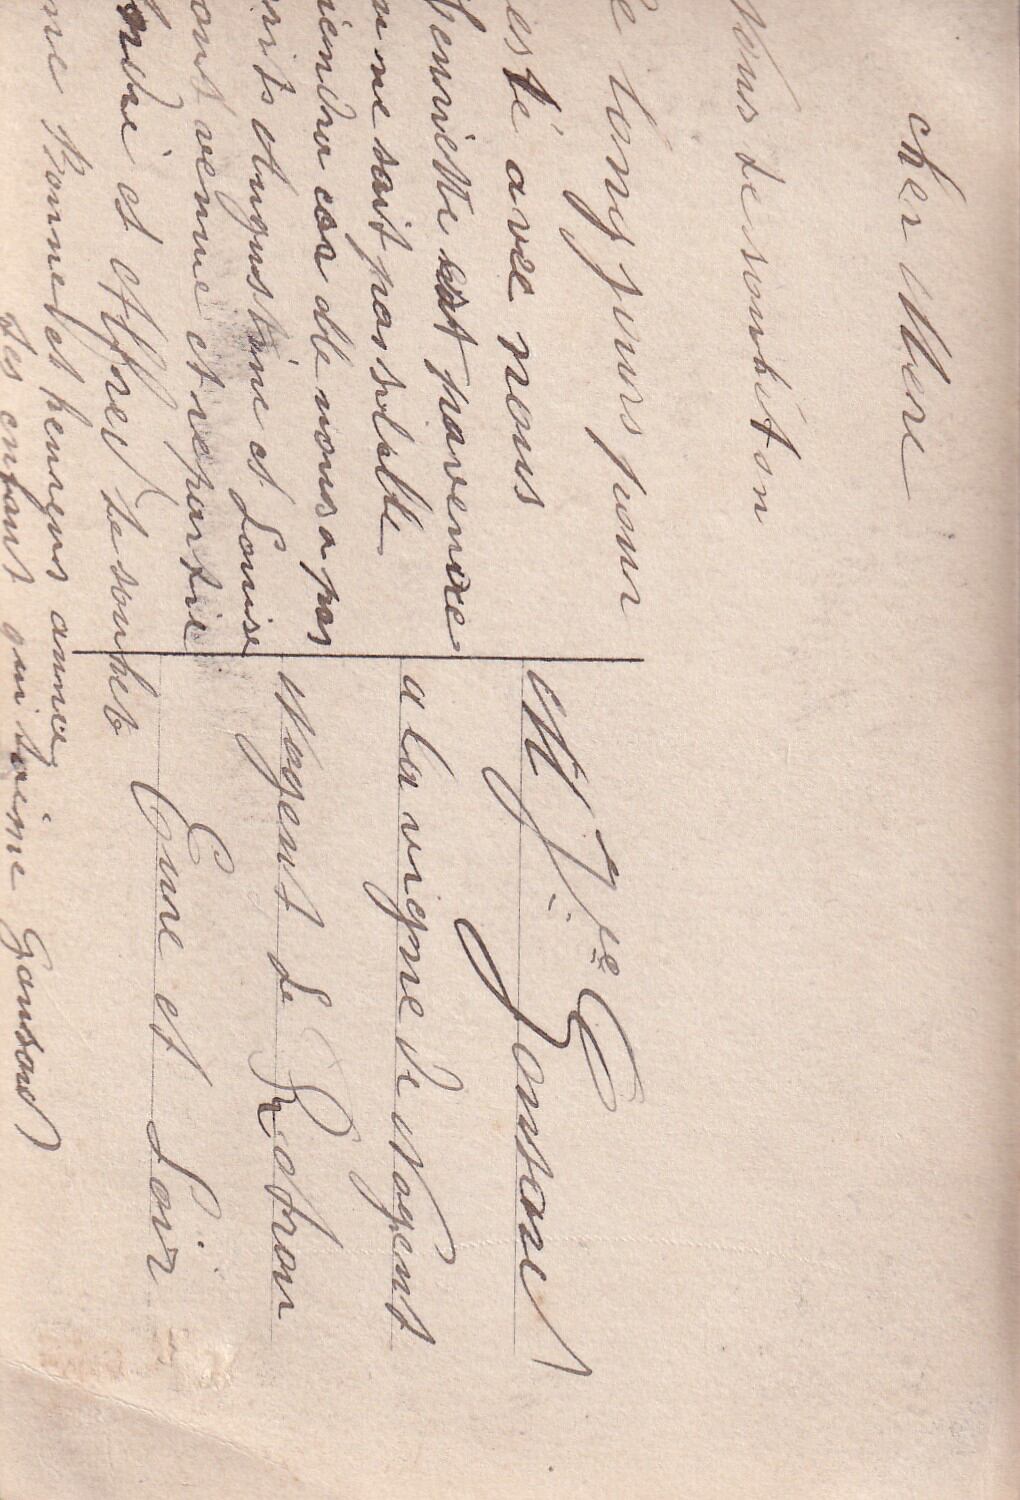 cher Mere
Vous de sombit on
e long jours pour
esté avec nous
Henriette est pavence
n ne sait pas sielle
iendra car de nous a pas
rits Augustine et Louise
ont venue et repartie
et Alfred te souhet
ne Bonne et heureus année
Les enfant qui taime Gousard
M Jne Gousard
a la vigne de Nogent
Nogent Le Rotrou
Eure et Loir